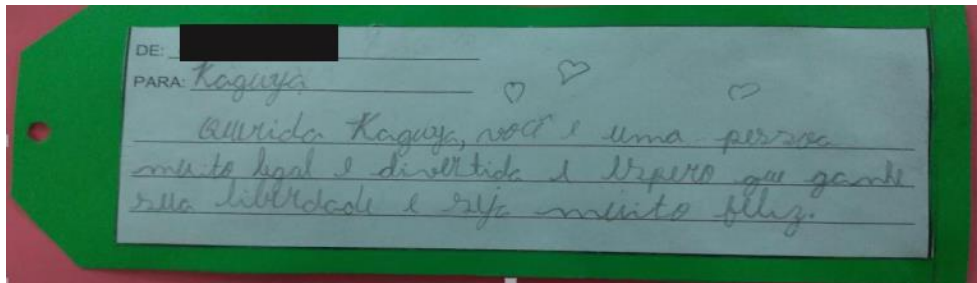 DE:
PARA: Kaguya
Querida Kaguya, você é uma pessoa
muito legal e divertida e espero que ganhe
sua liberdade e seja muito feliz.